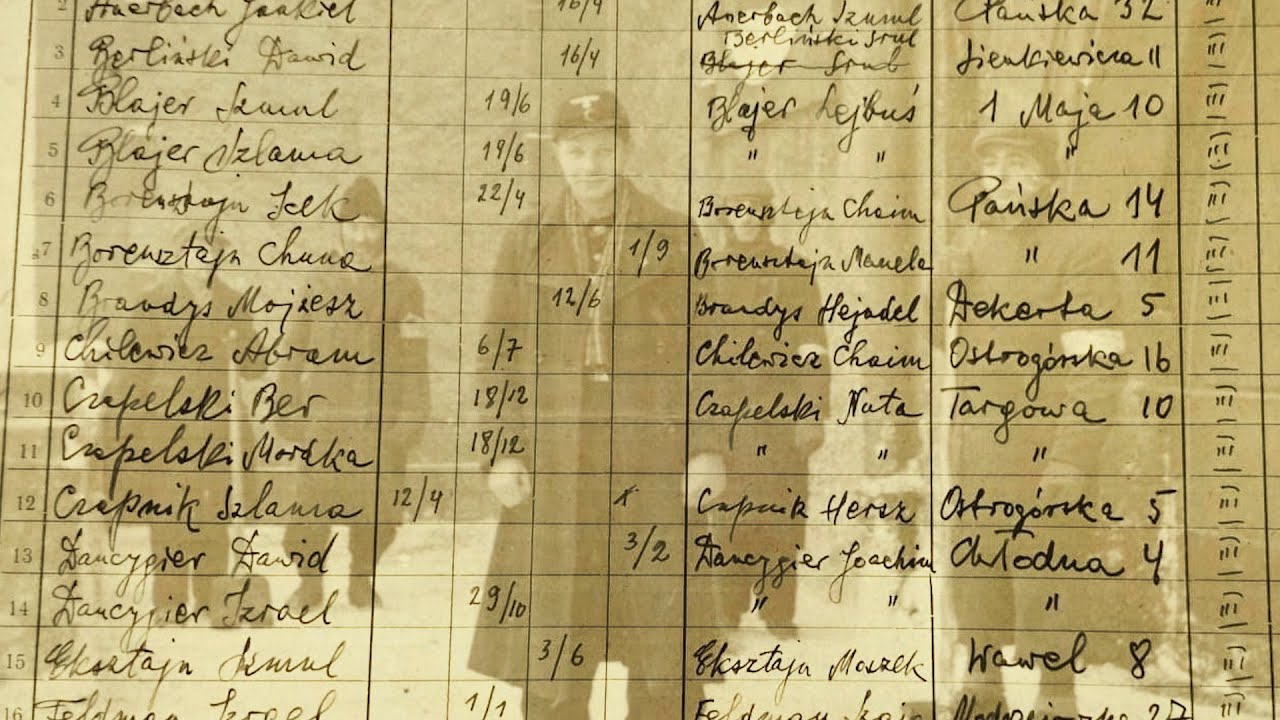 2 Auerbach Jankiel 16/4 Auerbach Szmul Pańska 32
Berliński Srul
3 Berliński Dawid 16/4 Blajer Srul Sienkiewicza 11
4 Blajer Szmul 19/6 Blajer Lejbuś 1 Maja 10
5 Blajer Szlama 19/6 " " "
6 Borensztajn Icek 22/4 Borensztajn Chaim Pańska 14
7 Borensztajn Chuna 1/9 Borensztajn Manela " 11
8 Brandys Mojżesz 12/6 Brandys Hejndel Dekerta 5
9 Chilewicz Abram 6/7 Chilewicz Chaim Ostrogórska 16
10 Czapelski Ber 18/12 Czapelski Nuta Targowa 10
11 Czapelski Mordka 18/12 " " "
12 Czapnik Szlama 12/4 x Czapnik Hersz Ostrogórska 5
13 Dancygier Dawid 3/2 Dancygier Joachim Chłodna 4
14 Dancygier Izrael 29/10 " " "
15 Eksztajn Szmul 3/6 Eksztajn Moszek Wawel 8
16 Feldman Izrael 1/1 Feldman Modrzejowska 27